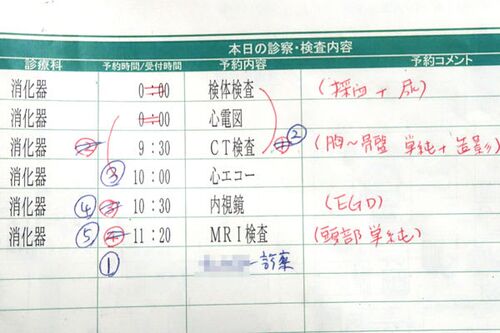 本日の診察・検査内容
診療科 予約時間/受付時間 予約内容 予約コメント
消化器 0:00 検体検査 (採血+尿)
消化器 0:00 心電図
消化器 9:30 CT検査 ② (胸～骨盤 単純+造影)
消化器 ③ 10:00 心エコー
消化器 ④ 10:30 内視鏡 (EGD)
消化器 ⑤ 11:20 MRI検査 (頭部単純)
① 診察